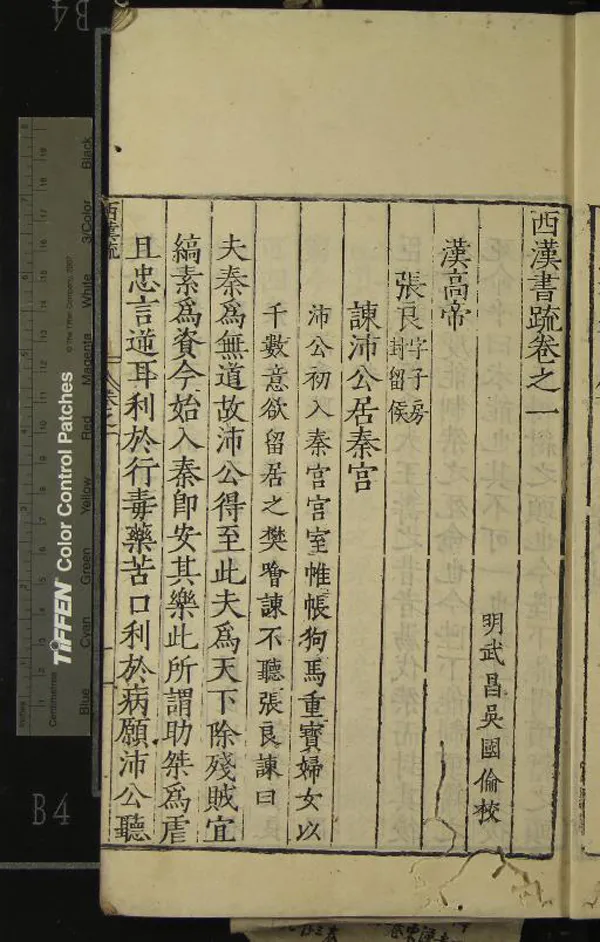 西漢書疏卷之一
明武昌吳國倫校
漢高帝
張良字子房封留侯
諫沛公居秦宮
沛公初入秦宮宮室帷帳狗馬重寶婦女以
千數意欲留居之樊噲諫不聽張良諫曰
夫秦爲無道故沛公得至此夫爲天下除殘賊宜
縞素爲資今始入秦卽安其樂此所謂助桀爲虐
且忠言逆耳利於行毒藥苦口利於病願沛公聽
西漢疏
卷之一
TIFFEN Color Control Patches
© The Tiffen Company, 2007
Blue Cyan Green Yellow Red Magenta White 3/Color Black
Inches
Centimetres
B4
B4